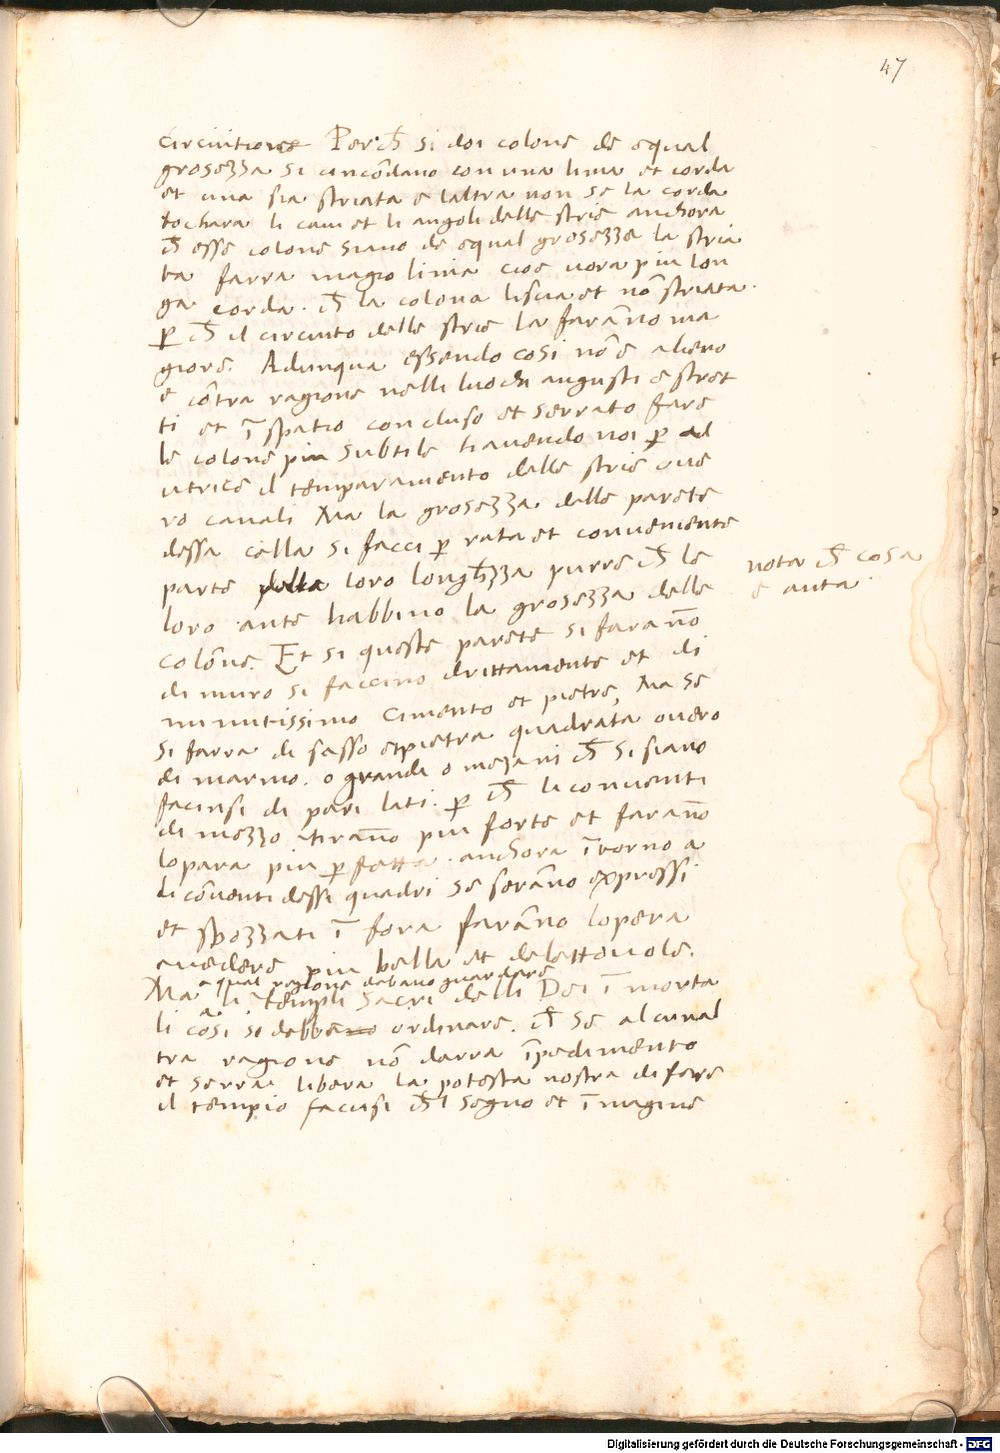 47
circuitione Perch̄ si doi colone de equal
grosezza si circōdano con una linia et corda
et una sia striata e laltra non se la corda
tochara li caui et li angoli delle strie anchora
ch̄ esse colone siano de equal grosezze la stria
ta farra magio linia cioe uora piu lon
ga corda. ch̄ la colona liscia et nō striata.
p̱ ch̄ il circuito delle strie la farāno ma
giore. Adunqua essendo cosi nōe alieno
e cōtra ragione nelli luochi angusti e stret
ti et ī spatio concluso et serrato fare
le colone piu subtile hauendo noi p̱ ad
iutrice il temparamento delle strie oue
ro canali Ma la grosezza delle parete
dessa cella si facci p̱ rata et conueniente
parte della loro longh̄zza purre ch̄ le
loro ante habbino la grosezza delle
colōne. Et si queste parete si farāno
di muro si faccino drittamente et di
minutissimo cimento et pietre, Ma se
si farra di sasso et pietra quadrata ouero
di marmo. o grandi o mezani ch̄ si siano
facinsi di pari lati. p̱ ch̄ li conuenti
di mezzo tirāno piu forte et farāno
lopara piu p̱fetta. anchora ītorno a
li cōuenti dessi quadri se serāno expressi
et spozzati ī fora farāno lopera
auedere piu bella et delettouole.
a qual ragione debano guardare
Ma li tēmpli sacri delli Dei ī morta
li cosi se debbeno ordinare. ch̄ se alcunal
tra ragione nō darra īpedimento
et serra libera la potesta nostra di fare
il tempio facusi ch̄l segno et īmagine
nota ch̄ cosa
e anta.
Digitalisierung gefördert durch die Deutsche Forschungsgemeinschaft - DFG